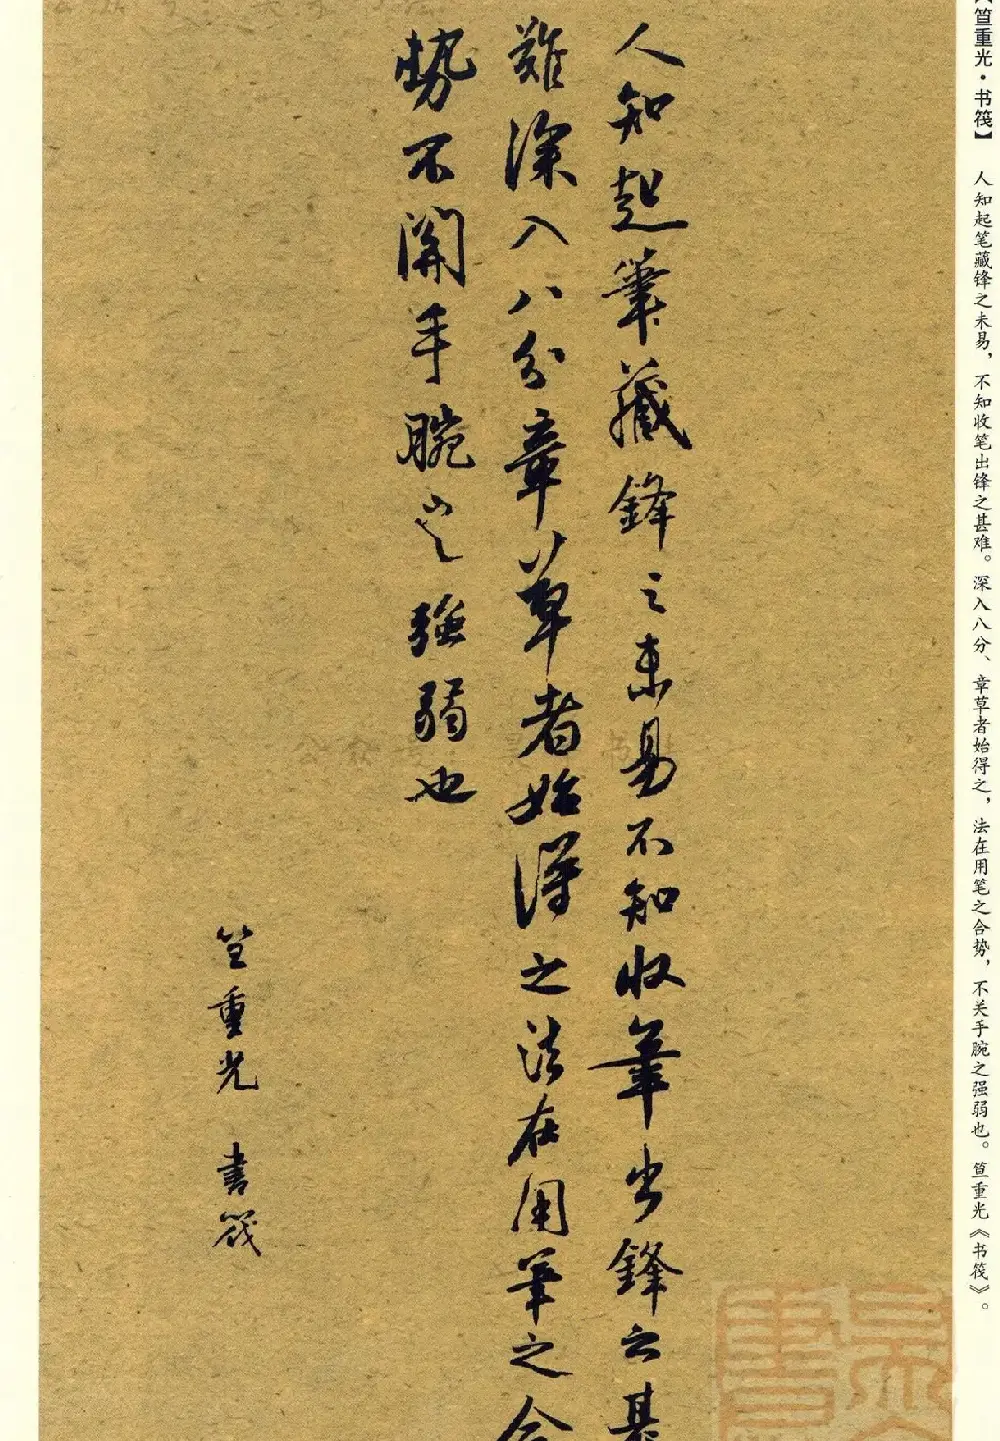 【笪重光·书筏】
人知起笔藏锋之未易，不知收笔出锋之甚难。深入八分、章草者始得之，法在用笔之合势，不关手腕之强弱也。笪重光《书筏》。
人知起筆藏鋒之未易不知收筆出鋒之甚
難深入八分章草者始得之法在用筆之合
勢不關手腕之強弱也
笪重光 書筏